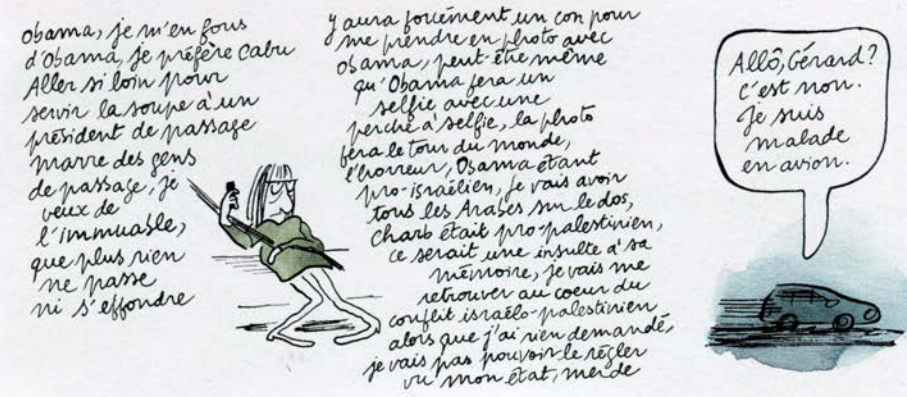 Obama, je m'en fous
d'Obama, je préfère Cabu
Aller si loin pour
servir la soupe à un
président de passage
marre des gens
de passage, je
veux de
l'immuable,
que plus rien
ne passe
ni s'effondre
y aura forcément un con pour
me prendre en photo avec
Obama, peut-être même
qu'Obama fera un
selfie avec une
perche à selfie, la photo
fera le tour du monde,
l'horreur, Obama étant
pro-israélien, je vais avoir
tous les Arabes sur le dos,
Charb était pro-palestinien,
ce serait une insulte à sa
mémoire, je vais me
retrouver au coeur du
conflit israélo-palestinien
alors que j'ai rien demandé,
je vais pas pouvoir le régler
vu mon état, merde
Allô, Gérard?
C'est non.
Je suis
malade
en avion.